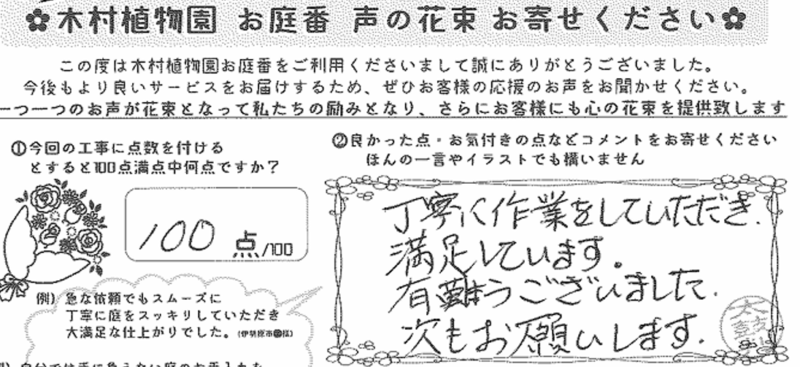 ✿木村植物園 お庭番 声の花束 お寄せください✿
この度は木村植物園お庭番をご利用くださいまして誠にありがとうございました。
今後もより良いサービスをお届けするため、ぜひお客様の応援のお声をお聞かせください。
一つ一つのお声が花束となって私たちの励みとなり、さらにお客様にも心の花束を提供致します
①今回の工事に点数を付ける
とすると100点満点中何点ですか？
100 点/100
(例) 急な依頼でもスムーズに
丁寧に庭をスッキリしていただき
大満足な仕上がりでした。(伊勢原市 様)
②良かった点・お気付きの点などコメントをお寄せください
ほんの一言やイラストでも構いません
丁寧に作業をしていただき、
満足しています。
有難うございました。
次もお願いします。